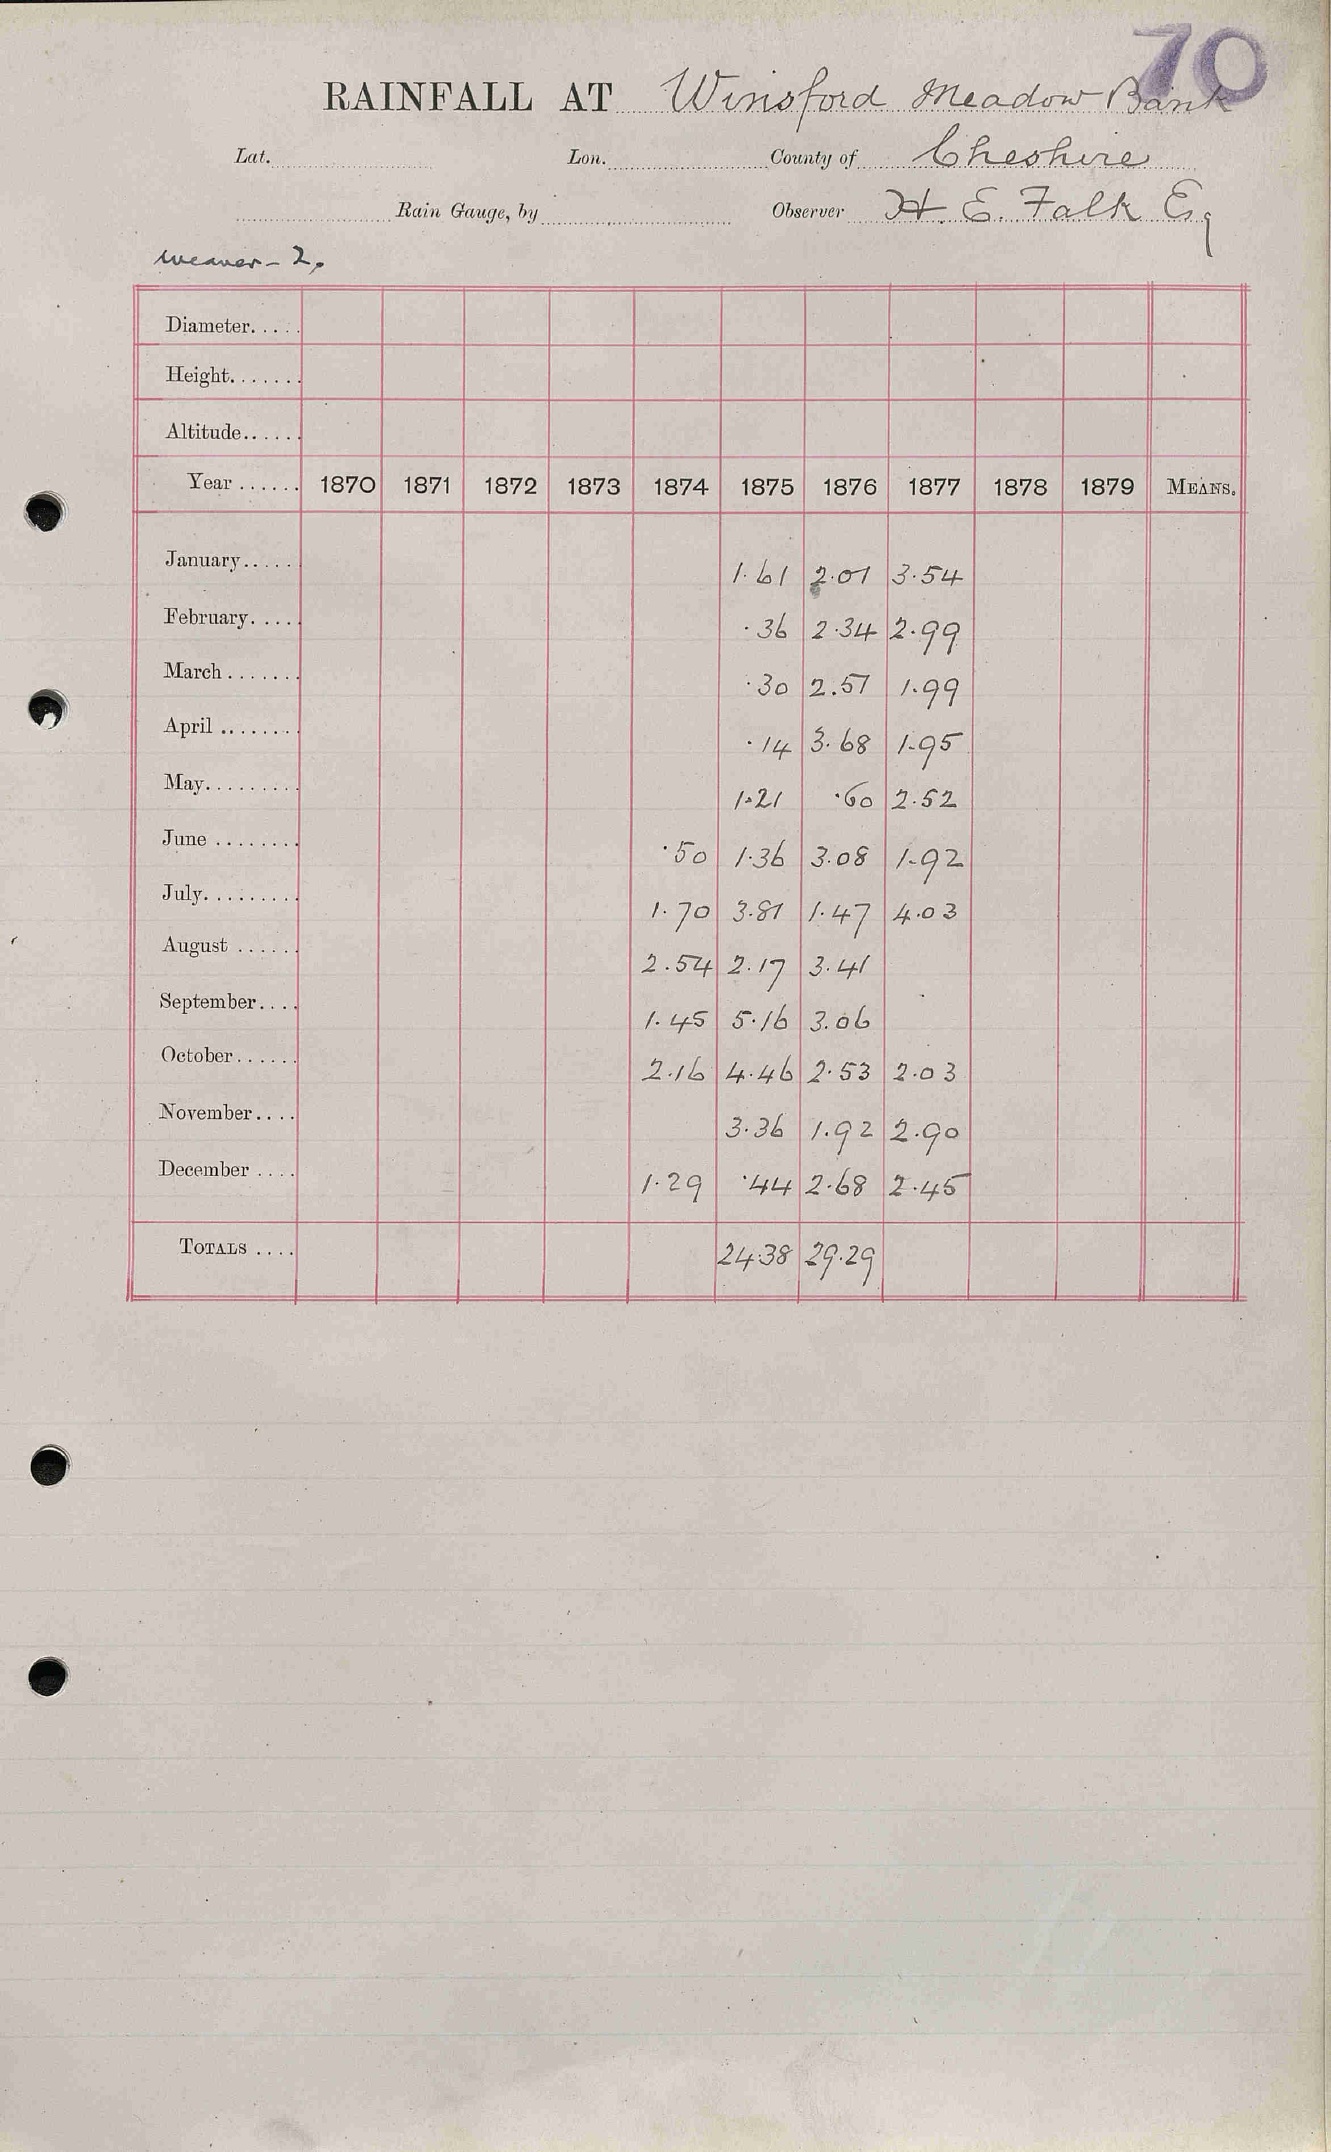 70
RAINFALL AT Winsford Meadow Bank
Lat. Lon. County of Cheshire
Rain Gauge, by Observer H. E. Falk Esq
Weaver - 2.
Diameter.....
Height.......
Altitude......
Year ...... 1870 1871 1872 1873 1874 1875 1876 1877 1878 1879 MEANS.
January..... 1.61 2.01 3.54
February..... .36 2.34 2.99
March ....... .30 2.51 1.99
April ........ .14 3.68 1.95
May......... 1.21 .60 2.52
June ........ .50 1.36 3.08 1.92
July......... 1.70 3.81 1.47 4.03
August ...... 2.54 2.17 3.41
September.... 1.45 5.16 3.06
October...... 2.16 4.46 2.53 2.03
November.... 3.36 1.92 2.90
December .... 1.29 .44 2.68 2.45
TOTALS .... 24.38 29.29